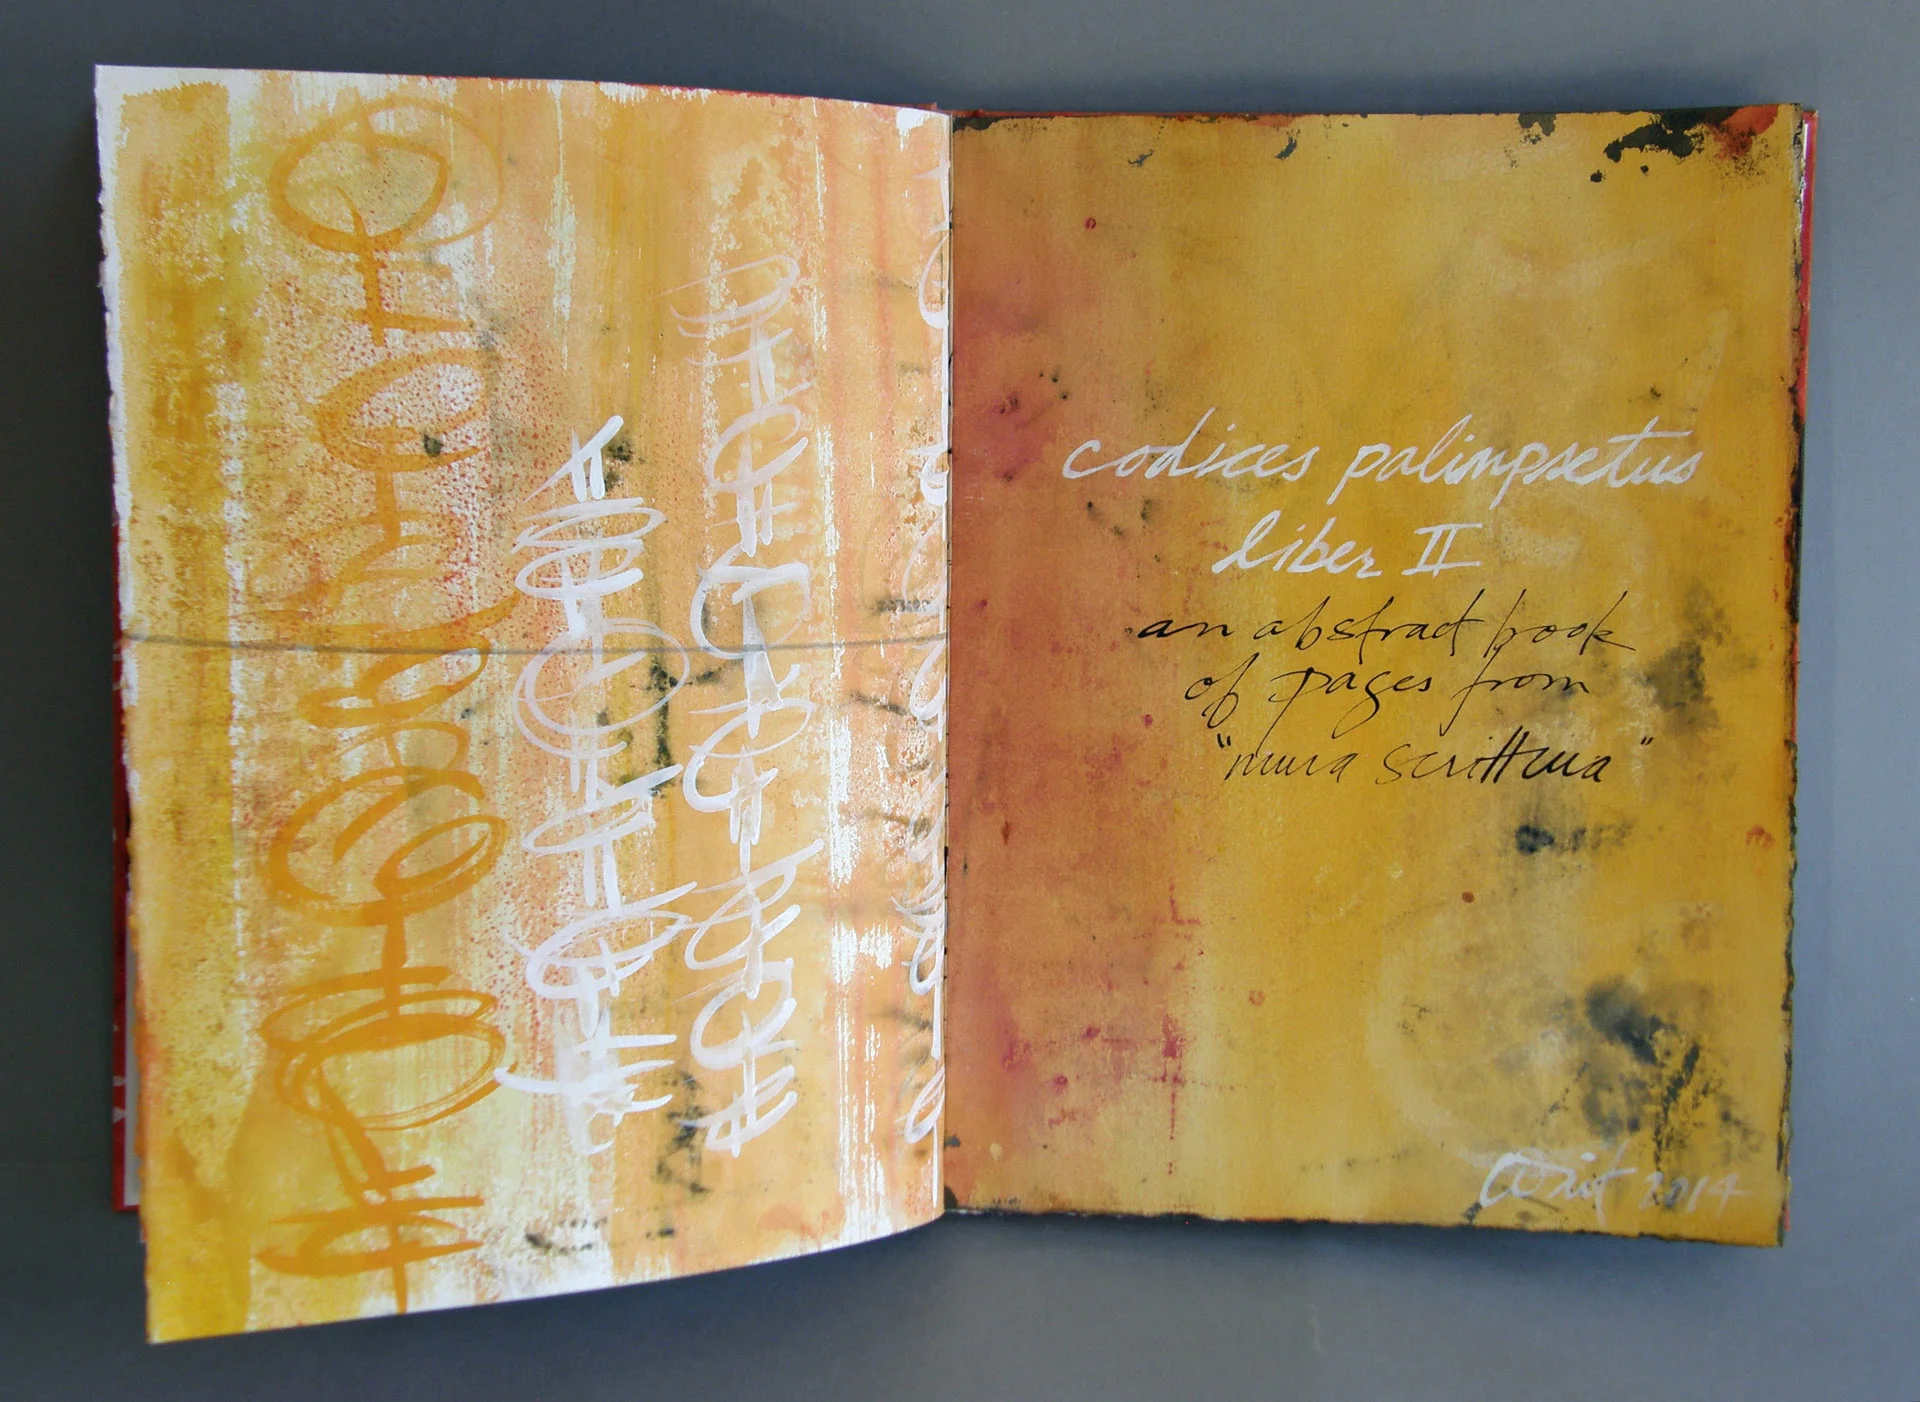 codices palimpsetus
liber II
an abstract book
of pages from
"mura scrittura"
2014